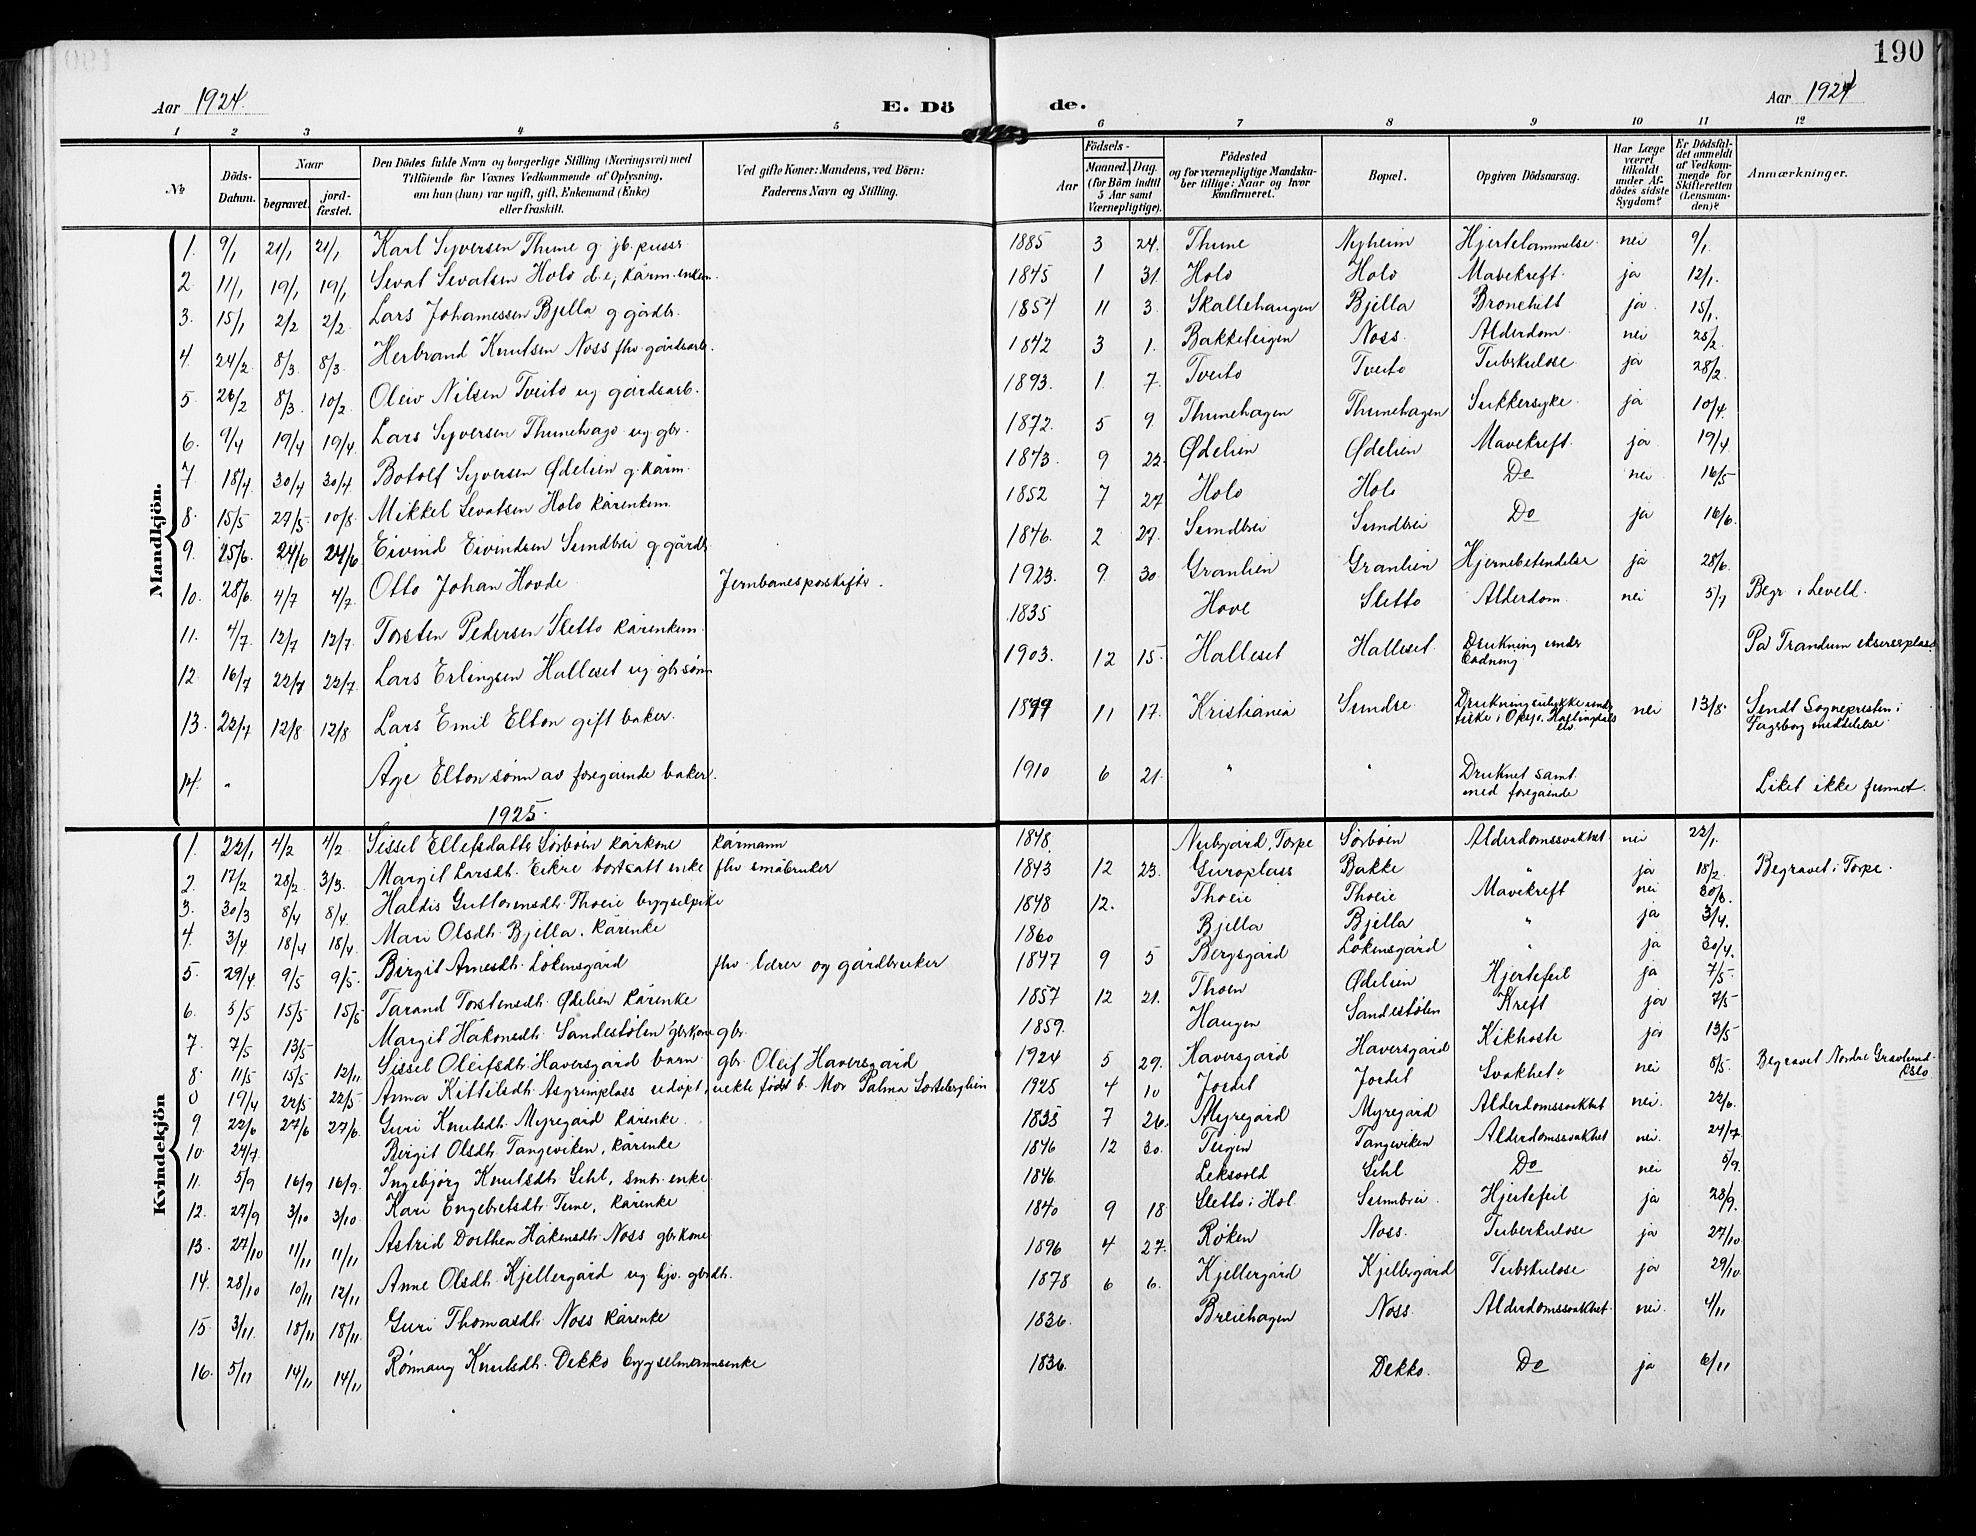 190
Aar 1924.
E. Dö de.
Aar 1924
1 2 3 4 5 6 7 8 9 10 11 12
No
Döds-Datum.
Naar
begravet.
jord-fæstet.
Den Dödes fulde Navn og borgerlige Stilling (Næringsvei) med Tilföiende for Voxnes Vedkommende af Oplysning, om hun (hun) var ugift, gift, Enkemand (Enke) eller fraskilt.
Ved gifte Koner: Mandens, ved Börn: Faderens Navn og Stilling.
Födsels-
Aar
Maaned. Dag.
(for Börn indtil 5 Aar samt Værnepligtige).
Födested og for værnepligtige Mandskaber tillige: Naar og hvor konfirmeret.
Bopæl.
Opgiven Dödsaarsag.
Har Læge været tilkaldt under Afdödes sidste Sygdom?
Er Dödsfaldet anmeldt af Vedkommende for Skifteretten (Lensmanden)?
Anmærkninger.
Mandkjön.
1. 9/1 21/1 21/1 Karl Syversen Thune g. jb. pusser 1885 3 24. Thune Nyheim Hjertelammelse. nei 9/1.
2. 11/1 19/1 19/1 Sevat Sevatsen Holo d.e, kårm. enkem. 1845 1 31. Holo Holo Mavekreft. ja 12/1.
3. 15/1 2/2 2/2 Lars Johannessen Bjella g gårdbr. 1854 11 3. Skallehaugen Bjella Bronchitt ja. 15/1.
4. 24/2 8/3 8/3. Herbrand Knutsen Noss fhv. gårdsarb. 1842 3 1. Bakketeigen Noss. Alderdom. nei 25/2.
5. 26/2 8/3 10/2. Oleiv Nilsen Tveito ug gårdsarb. 1893. 1. 7. Tveito Tveito Tubrkulose ja 28/2.
6. 9/4 19/4 19/4. Lars Syversen Thunehago ug gbr. 1872. 5 9. Thunehagen Thunehagen Sukkersyke. ja 10/4
7. 18/4 30/4 30/4. Botolf Syversen Ødelien g. kårm. 1843. 9 22. Ødelien Ødelien Mavekreft. ja 19/4
8. 15/5 27/5 10/8. Mikkel Sevatsen Holo kårenkem. 1852 7 27 Holo Holo Do nei 16/5
9. 25/6. 24/6 24/6 Eivind Eivindsen Sundbrei g gårdb. 1846. 2 27. Sundbrei Sundbrei Do ja 16/6.
10. 28/6. 4/7 4/7. Otto Johan Hovde Jernbaneporskiftr. 1923. 9. 30. Granlien Granlien Hjernebetendelse ja 28/6.
11. 4/7. 12/7 12/7. Torsten Pedersen Sletto kårenkem. 1835 Hove Sletto Alderdom. nei 5/7 Begr. i Leveld.
12. 16/7 22/7 22/7. Lars Erlingsen Halleset ug gbr.sønn 1903. 12 15. Halleset Halleset. Drukning under badning På Trandum eksersplass
13. 22/7 12/8 12/8 Lars Emil Elton gift baker. 11 17. Kristiania Sundre nei 13/8. Sendt Sognepresten i Fagerborg meddelelse.
14. " Åge Elton sønn av foregående baker. 1910 6 21. " " Druknet samt. med foregående Liket ikke funnet.
1925.
Kvindekjön
1. 22/1 4/2 4/2. Sissel Ellefsdatter Sørbøen kårkone kårmann 1848. Nubgård, Torpe Sørbøen Alderdomssvakhet. nei 22/1.
2. 17/2 28/2. 3/3. Margit Larsdt. Eikre bortsatt enke fhv småbruker 1843 12 23. Guroplass Bakke " ja 18/2. Begravet i Torpe.
3. 30/3 8/4 8/4. Haldis Guttormsdt. Thoeie bygselpike 1848 12. Thoeie Thoeie Mavekreft nei
4. 3/4 18/4 18/4. Mari Olsdt. Bjella, kårenke 1860 Bjella Bjella " ja 3/4.
5. 29/4 9/5 9/5. Birgit Arnesdt. Løkensgård fhv. lærer og gårdbruker 1847 9 5 Bergsgård Løkensgård " ja 30/4.
6. 5/5 15/5 15/5 Tarand Torstensdt. Ødelien kårenke 1857 12 21. Thoen Ødelien Hjertefeil ja 7/5.
7. 7/5 13/5 Margit Håkonsdt. Sandestølen gbrkone gbr. 1859. Haugen Sandestølen Kreft ja 7/5
8. 11/5 15/5 12/11 Sissel Oleifsdt. Haversgård barn. gbr. Oleif Haversgård 1924 5 29. Haversgård Haversgård Kikhoste ja 13/5
0 19/4 22/5 22/5. Anna Kittilsdt. Asgrimplass udøpt, uekte født b. Mor Palma 1925 4 10 Jordet Jordet Svakhet. nei 8/5. Begravet Nordre Gravlund. Oslo
9 22/6 27/6 27/6. Guri Knutsdt. Myregård kårenke. 1835 7 26. Myregård Myregård Alderdomssvakhet nei. 22/6.
10. 24/7. Birgit Olsdt. Tangeviken, kårenke 1846 12 30. Teigen Tangeviken Alderdomssvakhet nei. 24/7
11. 5/9 16/9 16/9. Ingebjørg Knutsdt. Sehl, smbr. enke 1846. Leksvold Sehl Do nei 5/9.
12. 27/9 3/10 3/10. Kari Engebretsdt. Tune, kårenke 1840 9 18 Sletto i Hol Sunnbrei. Hjertefeil ja 28/9.
13. 27/10 11/11 11/11. Astrid Dorthea Håkensdt. Noss gbrkone 1896 4 27. Røken Noss. Tuberkulose ja 27/10
14. 28/10 10/11 12/11 Anne Olsdt. Kjellergård ug hjv. gbrdt. 1878 6 6. Kjellergård Kjellergård Tubrkulose ja 29/10
15. 3/11. 18/11 18/11. Guri Thomasdt. Noss kårenke 1836. Breiehagen Noss. Alderdomssvakhet. nei. 4/11
16. 5/11 14/11 14/11 Rønnaug Knutsdt. Dekko bygselmannsenke 1836. Dekko. Do ja 6/11